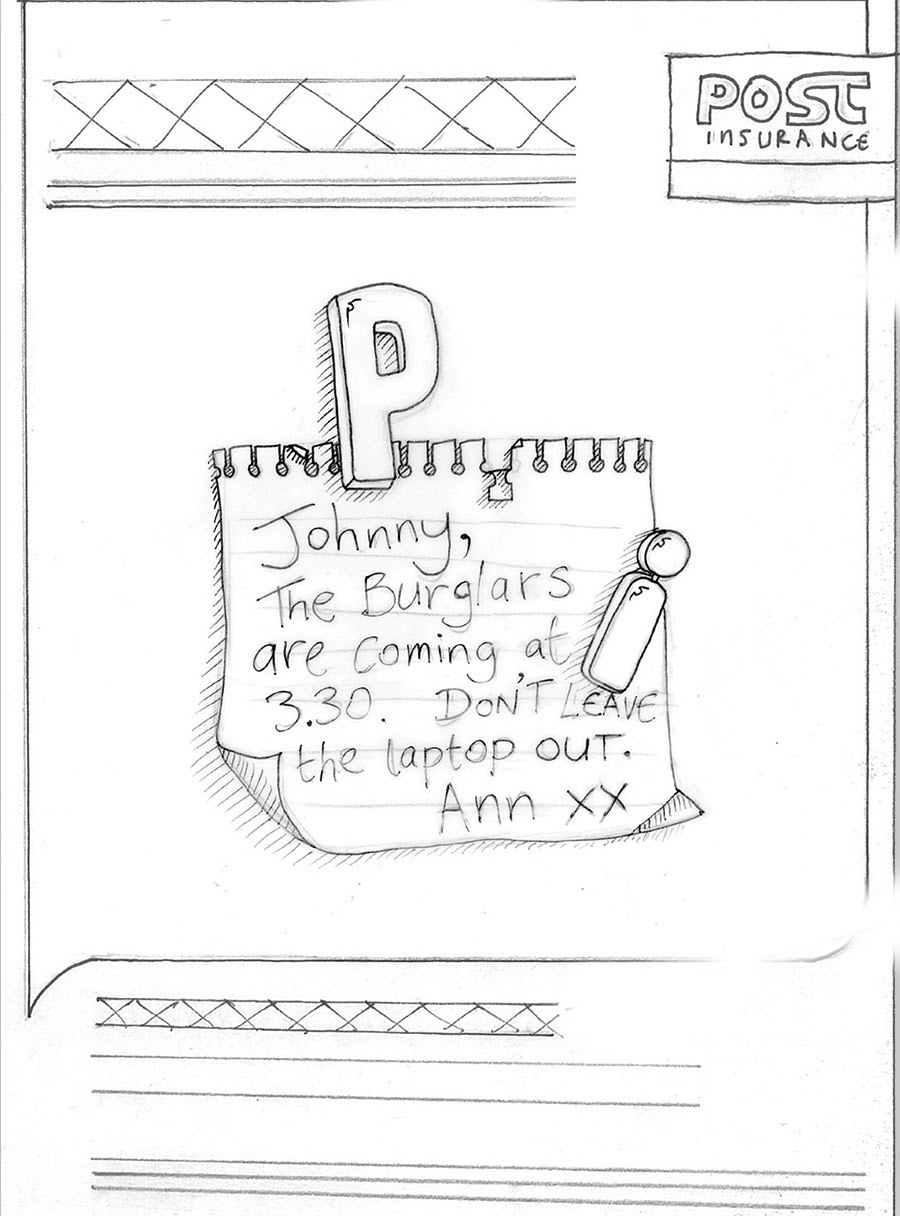 POST
INSURANCE
P
i
Johnny,
The Burglars
are coming at
3.30. DON'T LEAVE
the laptop OUT.
Ann XX